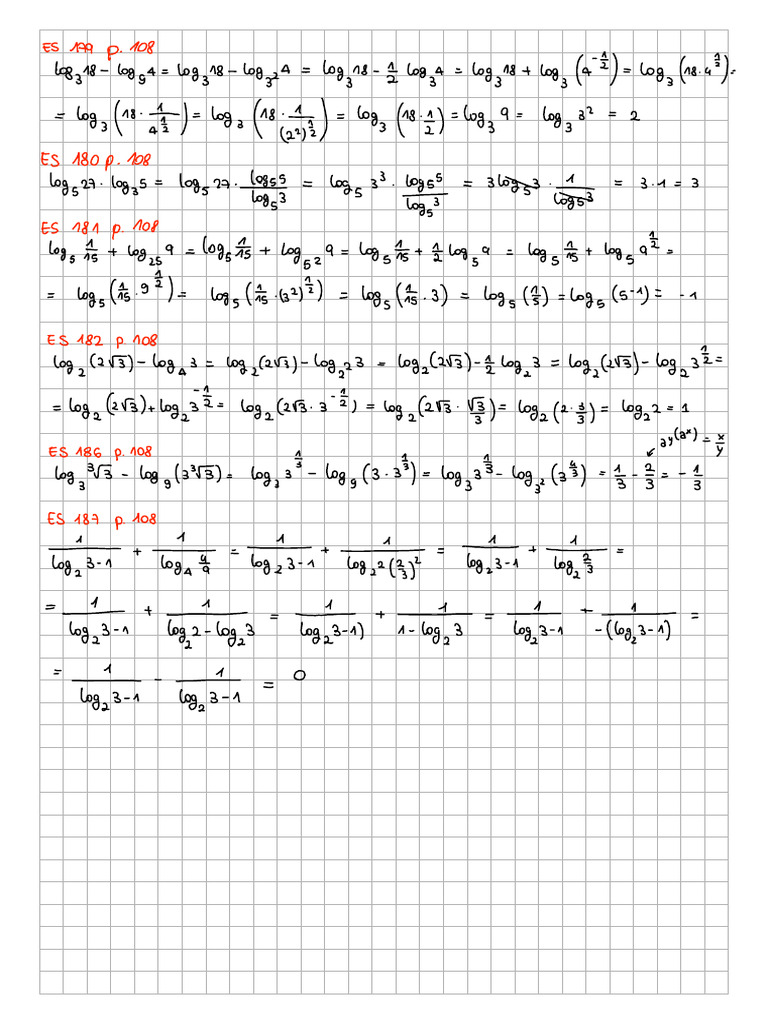 ES 179 p. 108
log₃18 - log₉4 = log₃18 - log₃²4 = log₃18 - 1/2 log₃4 = log₃18 + log₃(4^(-1/2)) = log₃(18·4^(1/2)) =
= log₃(18 · 1/4^(1/2)) = log₃(18 · 1/(2²)^(1/2)) = log₃(18 · 1/2) = log₃9 = log₃3² = 2
ES 180 p. 108
log₅27 · log₃5 = log₅27 · log₅5/log₅3 = log₅3³ · log₅5/log₅3 = 3log₅3 · 1/log₅3 = 3·1 = 3
ES 181 p. 108
log₅ 1/15 + log₂₅9 = log₅ 1/15 + log₅²9 = log₅ 1/15 + 1/2 log₅9 = log₅ 1/15 + log₅9^(1/2) =
= log₅(1/15 · 9^(1/2)) = log₅(1/15 · (3²)^(1/2)) = log₅(1/15 · 3) = log₅(1/5) = log₅(5⁻¹) = -1
ES 182 p. 108
log₂(2√3) - log₄3 = log₂(2√3) - log₂²3 = log₂(2√3) - 1/2 log₂3 = log₂(2√3) - log₂3^(1/2) =
= log₂(2√3) + log₂3^(-1/2) = log₂(2√3 · 3^(-1/2)) = log₂(2√3 · √3/3) = log₂(2 · 3/3) = log₂2 = 1
ES 186 p. 108
ay(aˣ) = x/y
log₃∛3 - log₉(3∛3) = log₃3^(1/3) - log₉(3 · 3^(1/3)) = log₃3^(1/3) - log₃²(3^(4/3)) = 1/3 - 2/3 = -1/3
ES 187 p. 108
1/(log₂3-1) + 1/(log₄ 4/9) = 1/(log₂3-1) + 1/(log₂²(2/3)²) = 1/(log₂3-1) + 1/(log₂ 2/3) =
= 1/(log₂3-1) + 1/(log₂2 - log₂3) = 1/(log₂3-1) + 1/(1 - log₂3) = 1/(log₂3-1) + 1/(-(log₂3-1)) =
= 1/(log₂3-1) - 1/(log₂3-1) = 0